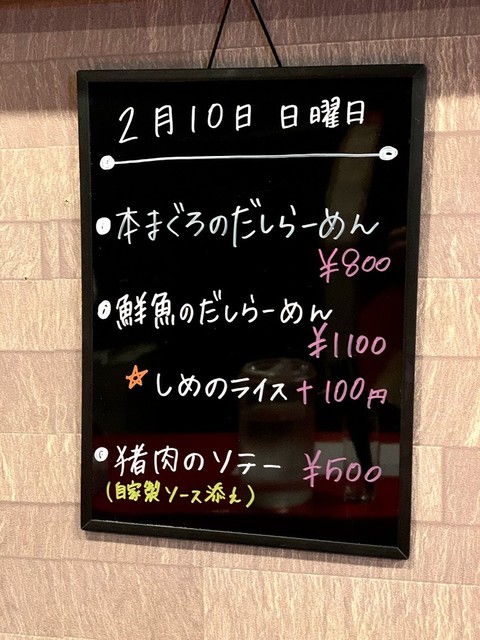 2月10日 日曜日
本まぐろのだしらーめん
¥800
鮮魚のだしらーめん
¥1100
☆しめのライス+100円
猪肉のソテー ¥500
(自家製ソース添え)